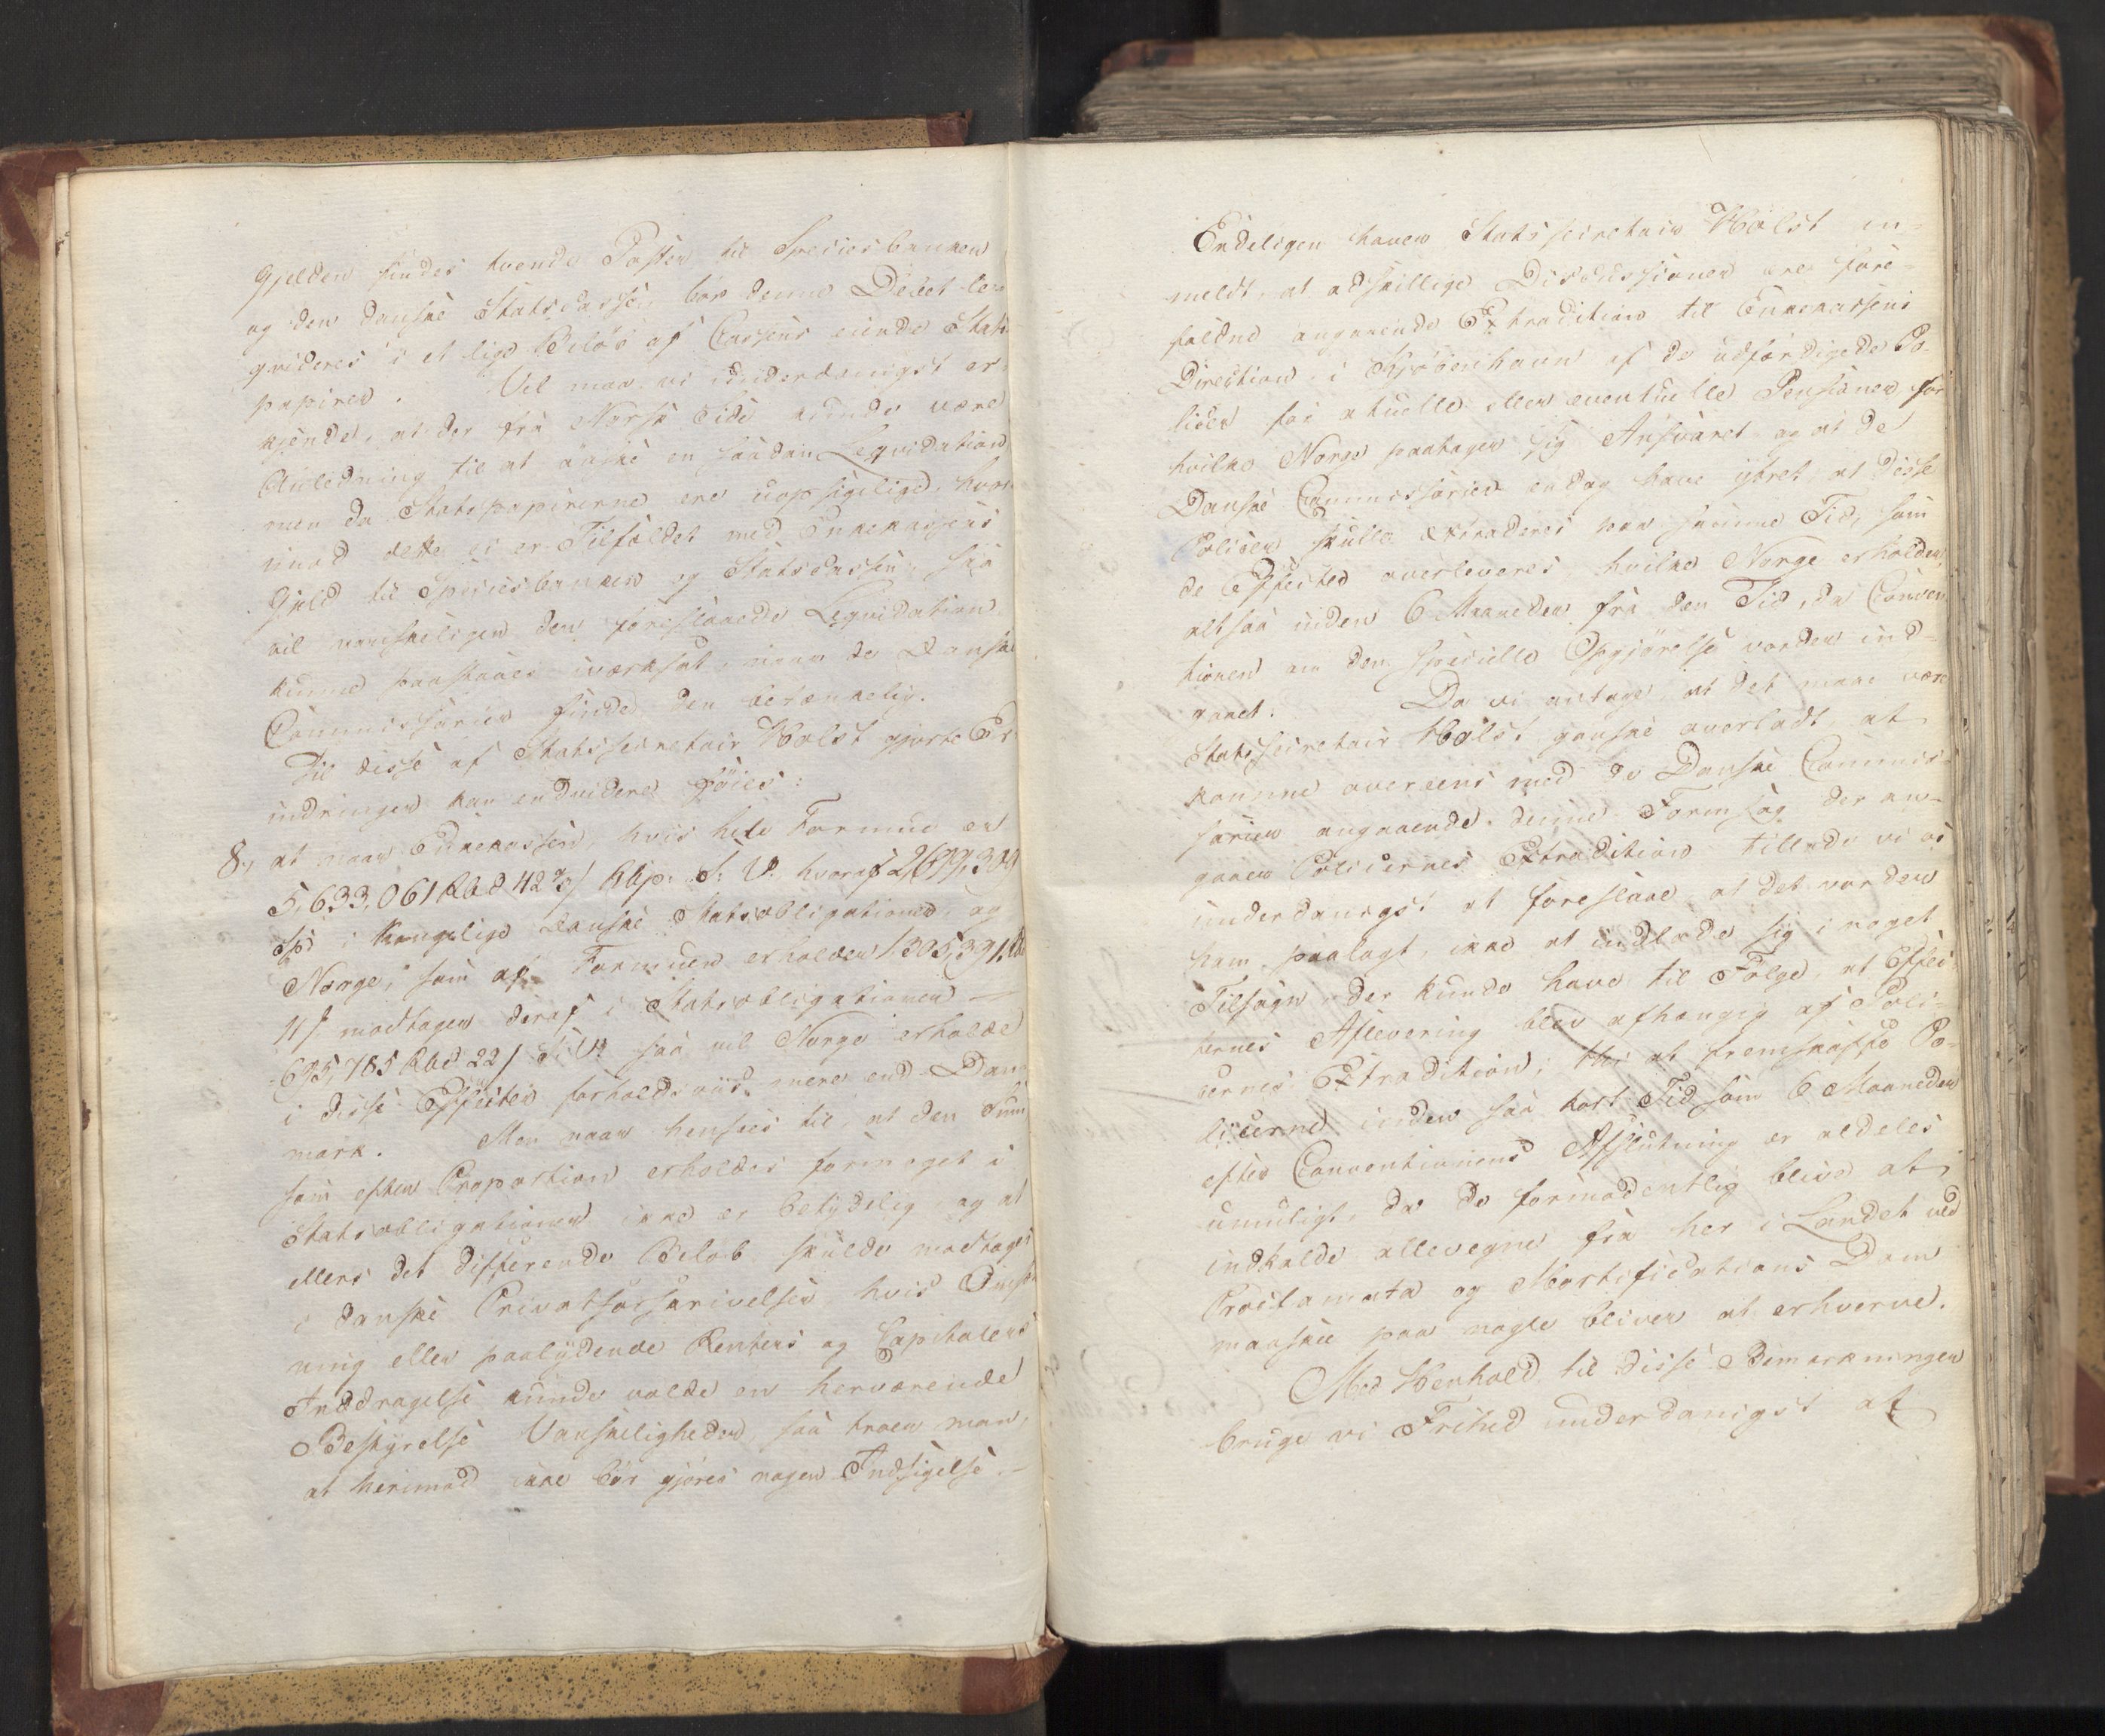 Gjelden findes tvende Poster til Speciesbanken
og den danske Statscasse, bør denne Debet le-
qvideres i et lige Beløb af Cassens eiende Stats
papirer. Vel maa vi underdanigst er-
kjende, at der fra Norsk Side kunde være
Anledning til at ønske en saadan Leqvidation
men da Statspapirerne ere uopsigelige, hvori
mod dette ei er Tilfældet med Enkekassens
Gjeld til Speciesbanken og Statscassen, saa
vil vanskeligen den foreslaaede Leqvidation
kunne paastaaes iværksat, naar de Danske
Commissarier finde den betænkelig.
Til disse af Statssecretair Holst gjorte Er-
indringer kan endvidere föies:
8, at naar Enkekassen, hvis hele Formue er
5,633,061 Rbd 42 2/3 s Rbp: S: V: hvoraf 2,699,304
Sp: i Kongelige danske Statsobligationer, og
Norge, som af Formuen erholder 1,305,391 Rbd
11 s. modtager deraf i Statsobligationer
695,785 Rbd 22 s S: V: saa vil Norge erholde
i disse Effecter forholdsviis mere end Dan-
mark. Men naar hensees til, at den Sum
som efter Proportion erholdes formeget i
Statsobligationer ikke er betydelig, og at
ellers det differende Belöb skulde modtages
i danske Privatforskrivelser, hvis Omsæt
ning eller paalydende Renters og Capitalers
Inddragelse kunde volde en herværende
Bestyrelse Vanskeligheder, saa troer man,
at herimod ikke bör gjöres nogen Indsigelse.
Endeligen haver Statssecretair Holst an-
meldt, at adskillige Discussioner ere fore-
faldne angaaende Extradition til Enkekassens
Direction i Kjøbenhavn af de udfærdigede Po-
licer for actuelle eller eventuelle Pensioner for
hvilke Norge paatager sig Ansvaret, og at de
Danske Commissarier endog have yttret, at disse
Policer skulle extraderes paa samme Tid, som
de Effecter overleveres, hvilke Norge erholder,
altsaa inden 6 Maaneder fra den Tid, da Conven
tionen om den specielle Opgjörelse vorder ind-
gaaet. Da vi antage, at det maae være
Statssecretair Holst ganske overladt, at
komme overeens med de Danske Commis-
sarier angaaende denne Formsag, der an-
gaaer Policernes Extradition tillade vi os
underdanigst at foreslaae, at det vorder
ham paalagt, ikke at indlade sig i noget
Tilsagn, der kunde have til Fölge, at Effec-
ternes Aflevering blev afhængig af Poli-
cernes Extradition; thi at fremskaffe Po-
licerne inden saa kort Tid som 6 Maaneder
efter Conventionens Afslutning er aldeles
umuligt, da de formodentlig blive at
indkalde allevegne fra her i Landet ved
Proclamata og Mortifications Dom
maaskee paa nogle bliver at erhverve.
Med Henhold til disse Bemærkninger
bruge vi Frihed underdanigst at